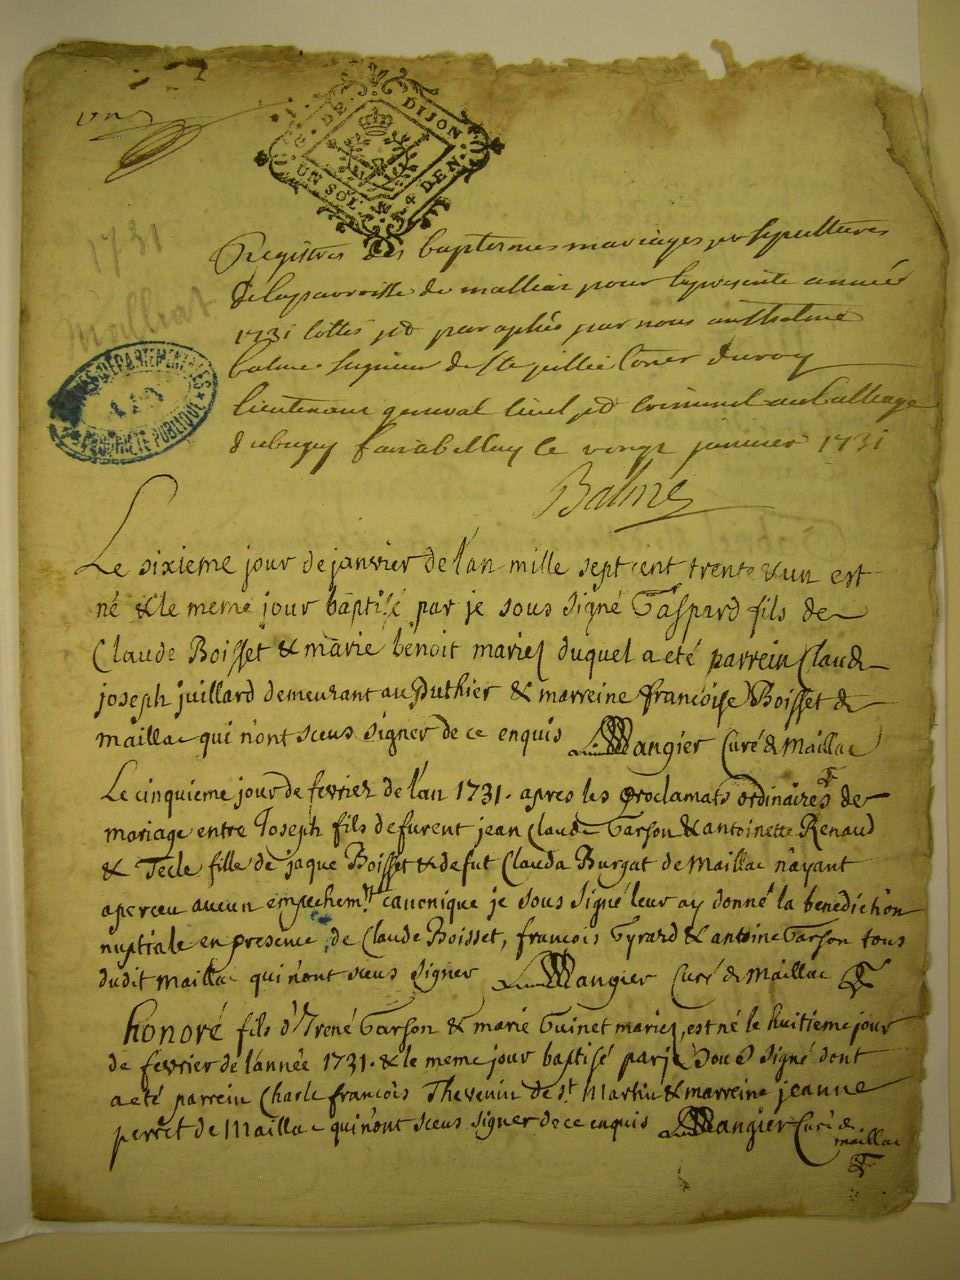 un
G. DE DIJON
UN SOL 4 DEN.
1731
Maillat
Registres des baptesmes mariages et sepultures
de la parroisse de malliat pour la presente année
1731 cottés et paraphés par nous anthelme
balme seigneur de Ste jullie Coner du roy
lieutenant general civil et criminel au balliage
du bugey fait a belley le vingt janvier 1731
ARCHIVES DÉPARTEMENTALES
AIN
PROPRIÉTÉ PUBLIQUE
Balme
Le sixieme jour de janvier de l'an mille sept cent trente & un est
né & le meme jour baptisé par je sous signé Gaspard fils de
Claude Boisset & marie benoit mariez duquel a eté parrein Claude
joseph juillard demeurant au Puthier & marreine françoise Boisset de
maillac qui n'ont sceus signer de ce enquis Mangier Curé de Maillac
Le cinquieme jour de fevrier de l'an 1731. apres les proclamats ordinaires de
mariage entre Joseph fils de furent jean Claude Garson & antoinette Renaud
& Tecle fille de jaque Boisset & de fut Clauda Burgat de Maillac n'ayant
aperceu aucun empechemt canonique je sous signé leur ay donné la benediction
nuptiale en presence de Claude Boisset, françois Gyrard & antoine Garson tous
dudit Maillac qui n'ont sceus signer Mangier Curé de Maillac
honoré fils d'Yrené Garson & marie Guinet mariez, est né le huitieme jour
de fevrier de l'année 1731. & le meme jour baptisé par je sous signé dont
a eté parrein Charle françois Thevenin de St Martin & marreine jeanne
perret de Maillac qui n'ont sceus signer de ce enquis Mangier Curé de
maillac